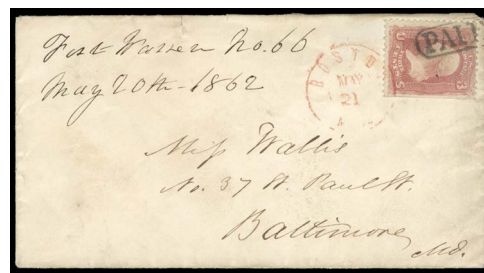 Fort Warren No. 66
May 20th - 1862
BOSTON
MAY
21
PAI
Miss Wallis
No. 37 St. Paul St.
Baltimore
Md.